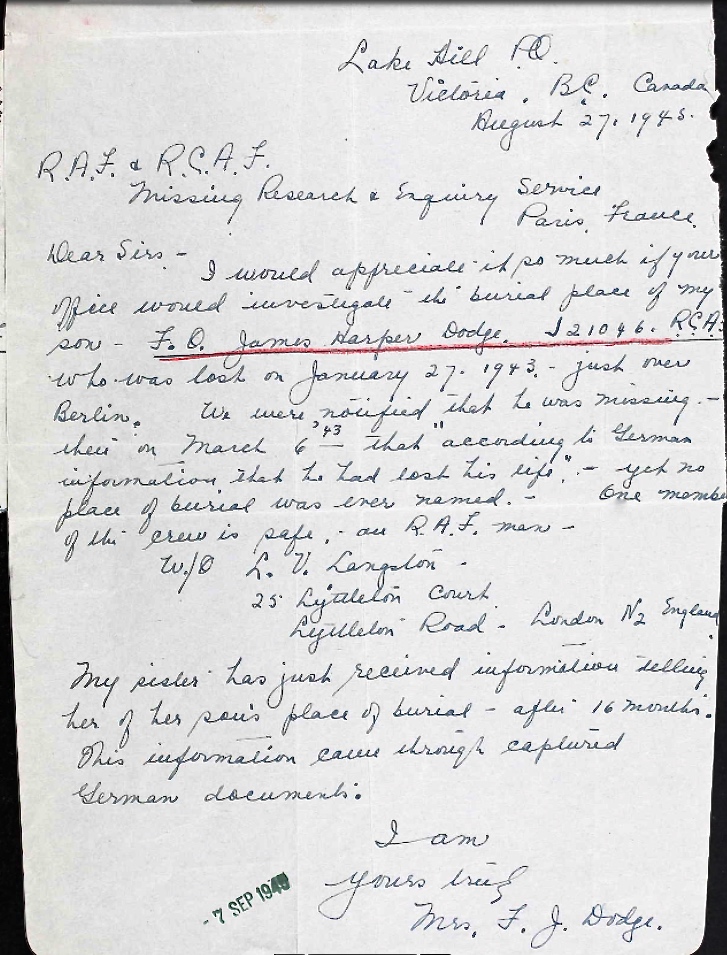 Lake Hill P.O.
Victoria. B.C. Canada
August 27. 1945.
R.A.F. & R.C.A.F.
Missing Research & Enquiry Service
Paris, France.
Dear Sirs -
I would appreciate it so much if your
office would investigate the burial place of my
son - F.O. James Harper Dodge. J21046. R.C.A.
who was lost on January 27. 1943. - just over
Berlin. We were notified that he was missing. -
then on March 6 '43 that "according to German
information that he had lost his life". - yet no
place of burial was ever named. - One membe
of the crew is safe, - an R.A.F. man -
W/O L. V. Langston -
25 Lyttleton Court
Lyttleton Road - London N2 England
My sister has just received information telling
her of her son's place of burial - after 16 months.
This information came through captured
German documents.
I am
Yours truly
Mrs. F. J. Dodge.
- 7 SEP 1945